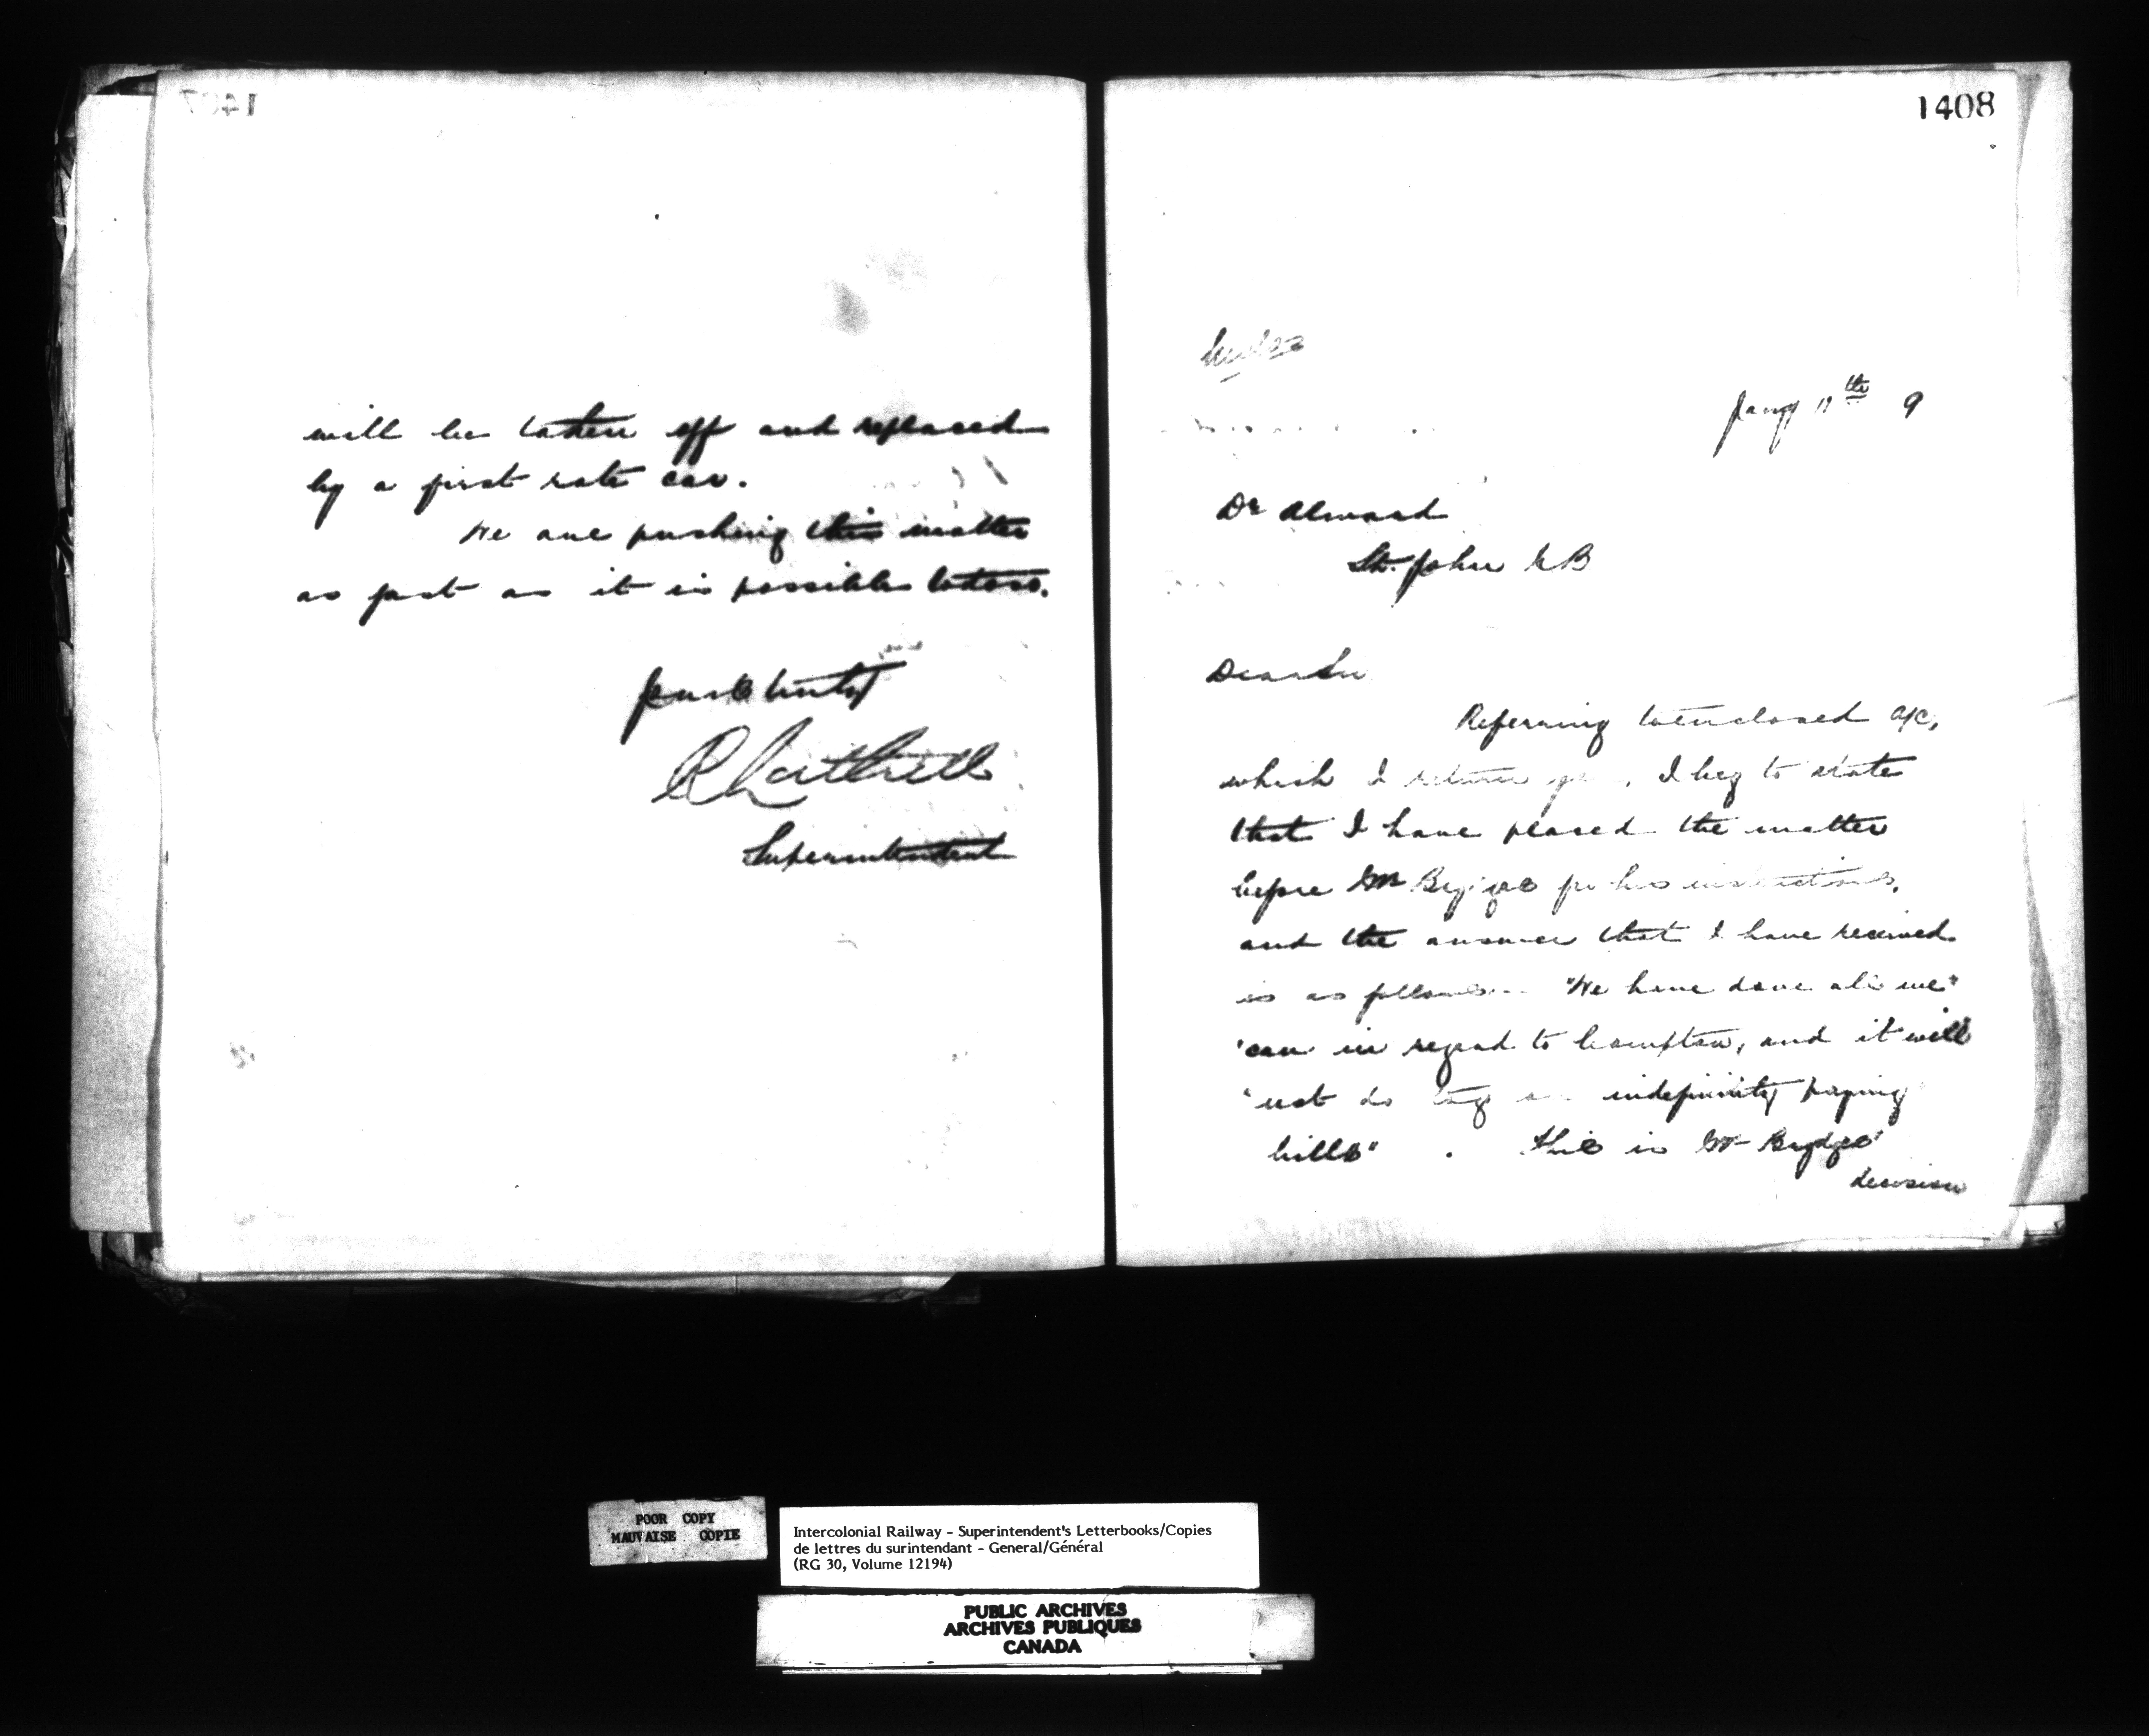 1407
will be taken off and replaced
by a first rate car.
We are pushing this matter
as fast as it is possible to do so.
Yours truly
Superintendent
1408
Jany 11th 9
Dr Alward
St. John NB
Dear Sir
Referring to enclosed a/c,
which I return you, I beg to state
that I have placed the matter
before Mr Brydges for his instructions,
and the answer that I have received
is as follows "We have done all we"
"can in regard to Compton, and it will
"not do to go on indefinitely paying
bills" . This is Mr Brydges'
decision
POOR COPY
MAUVAISE COPIE
Intercolonial Railway - Superintendent's Letterbooks/Copies
de lettres du surintendant - General/Général
(RG 30, Volume 12194)
PUBLIC ARCHIVES
ARCHIVES PUBLIQUES
CANADA